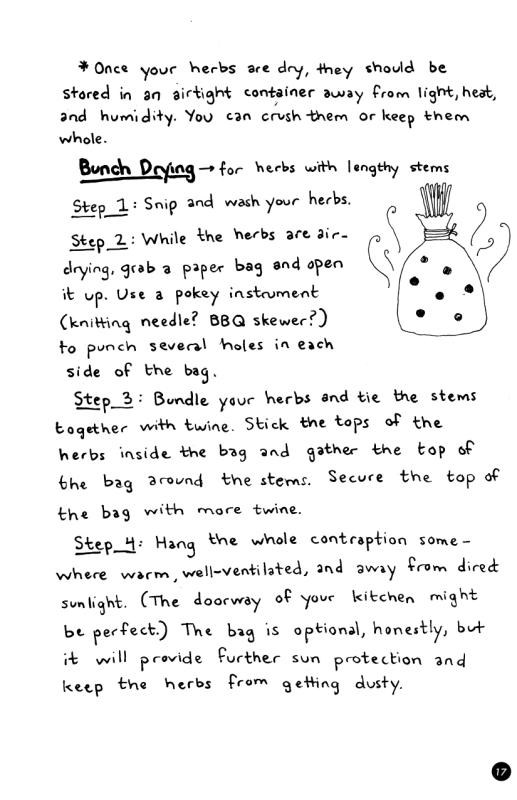 * Once your herbs are dry, they should be
stored in an airtight container away from light, heat,
and humidity. You can crush them or keep them
whole.
Bunch Drying → for herbs with lengthy stems
Step 1: Snip and wash your herbs.
Step 2: While the herbs are air-
drying, grab a paper bag and open
it up. Use a pokey instrument
(knitting needle? BBQ skewer?)
to punch several holes in each
side of the bag.
Step 3: Bundle your herbs and tie the stems
together with twine. Stick the tops of the
herbs inside the bag and gather the top of
the bag around the stems. Secure the top of
the bag with more twine.
Step 4: Hang the whole contraption some-
where warm, well-ventilated, and away from direct
sunlight. (The doorway of your kitchen might
be perfect.) The bag is optional, honestly, but
it will provide further sun protection and
keep the herbs from getting dusty.
17